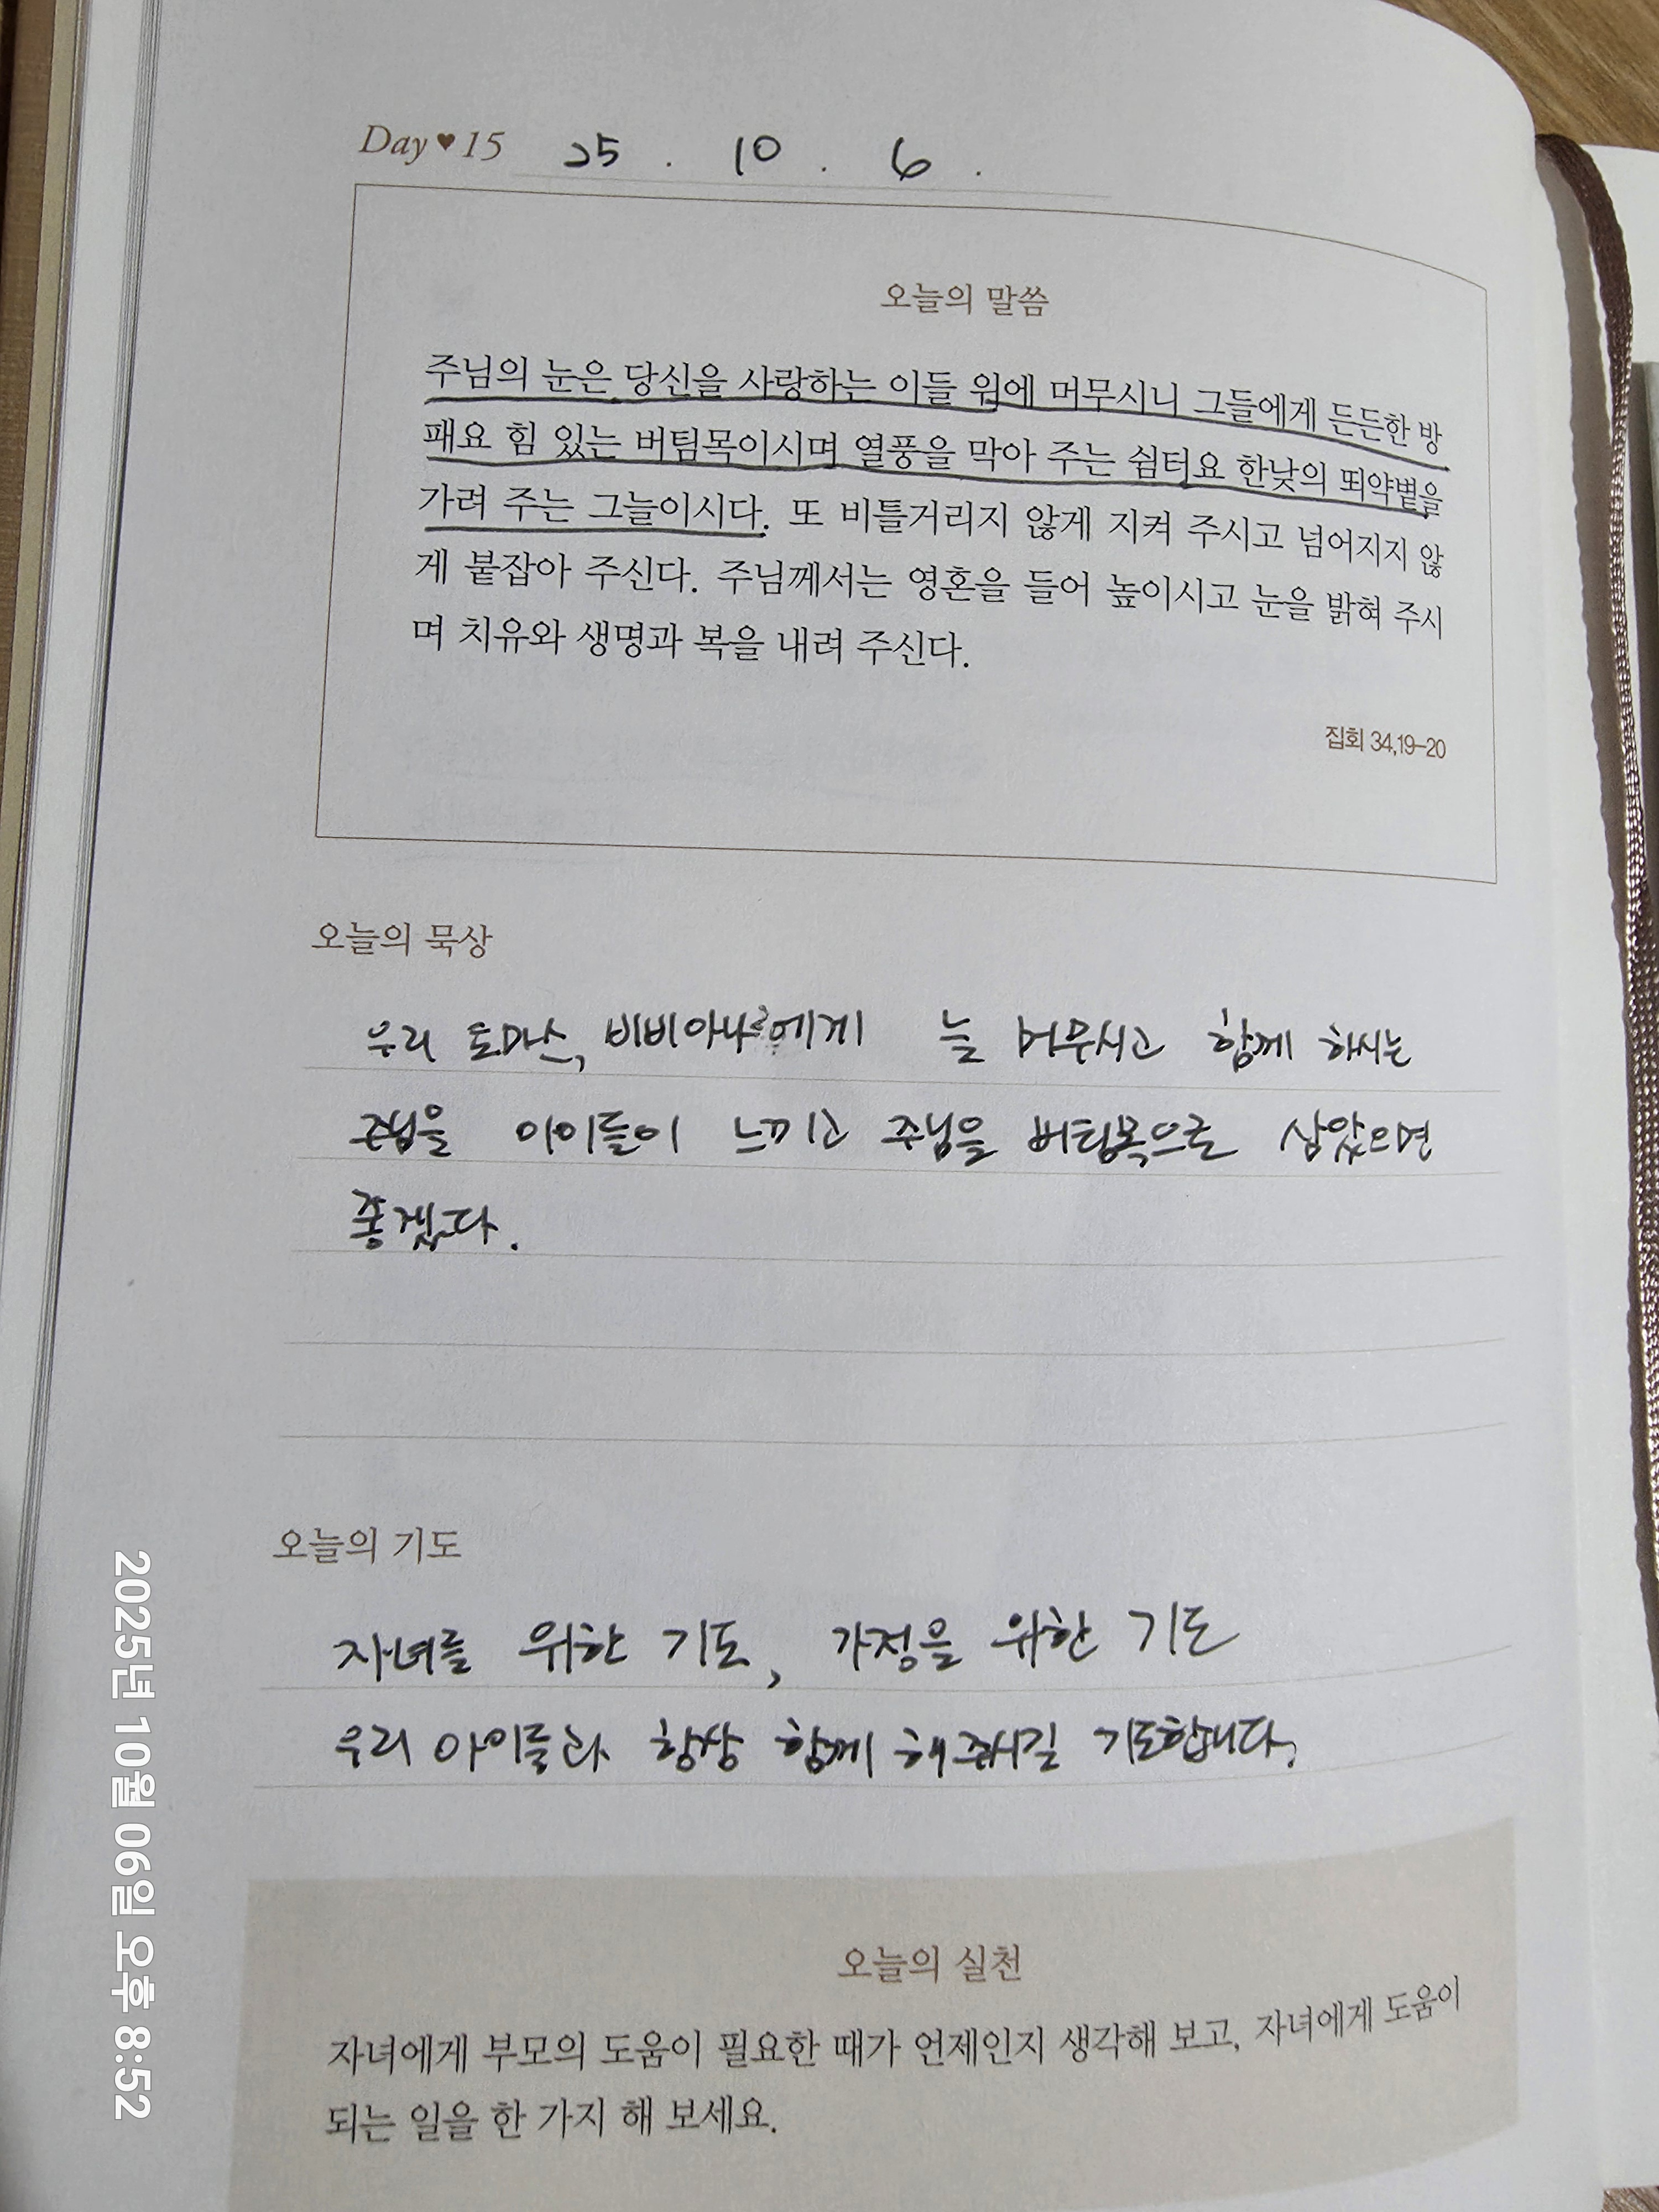 Day♥15 25 . 10 . 6 .
오늘의 말씀
주님의 눈은 당신을 사랑하는 이들 위에 머무시니 그들에게 든든한 방
패요 힘 있는 버팀목이시며 열풍을 막아 주는 쉼터요 한낮의 뙤약볕을
가려 주는 그늘이시다. 또 비틀거리지 않게 지켜 주시고 넘어지지 않
게 붙잡아 주신다. 주님께서는 영혼을 들어 높이시고 눈을 밝혀 주시
며 치유와 생명과 복을 내려 주신다.
집회 34,19-20
오늘의 묵상
우리 토마스, 비비아나에게 늘 머무시고 함께 하시는
주님을 아이들이 느끼고 주님을 버팀목으로 삼았으면
좋겠다.
오늘의 기도
자녀를 위한 기도, 가정을 위한 기도
우리 아이들과 항상 함께 해주시길 기도합니다.
오늘의 실천
자녀에게 부모의 도움이 필요한 때가 언제인지 생각해 보고, 자녀에게 도움이
되는 일을 한 가지 해 보세요.
2025년 10월 06일 오후 8:52